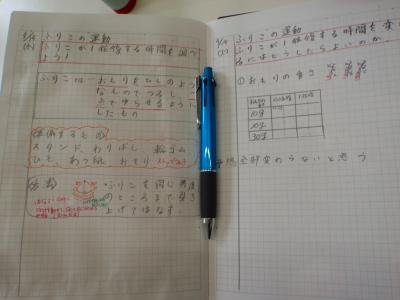 ふりこの運動
ふりこが1往復する時間を調べ
よう!
ふりこは…おもりをひものよう
なものでつるし
左右でゆらるように
したもの
用意するもの
スタンド、わりばし、輪ゴム
ひも、あつ紙、おもり
方法
・ふりこを同じ角度
のところまで引き
上げてはなす。
ふりこの運動
ふりこが1往復する時間を変え
るにはどうしたらよいのか。
①おもりの重さ
10g
20g
30g
予想 全部変わらないと思う